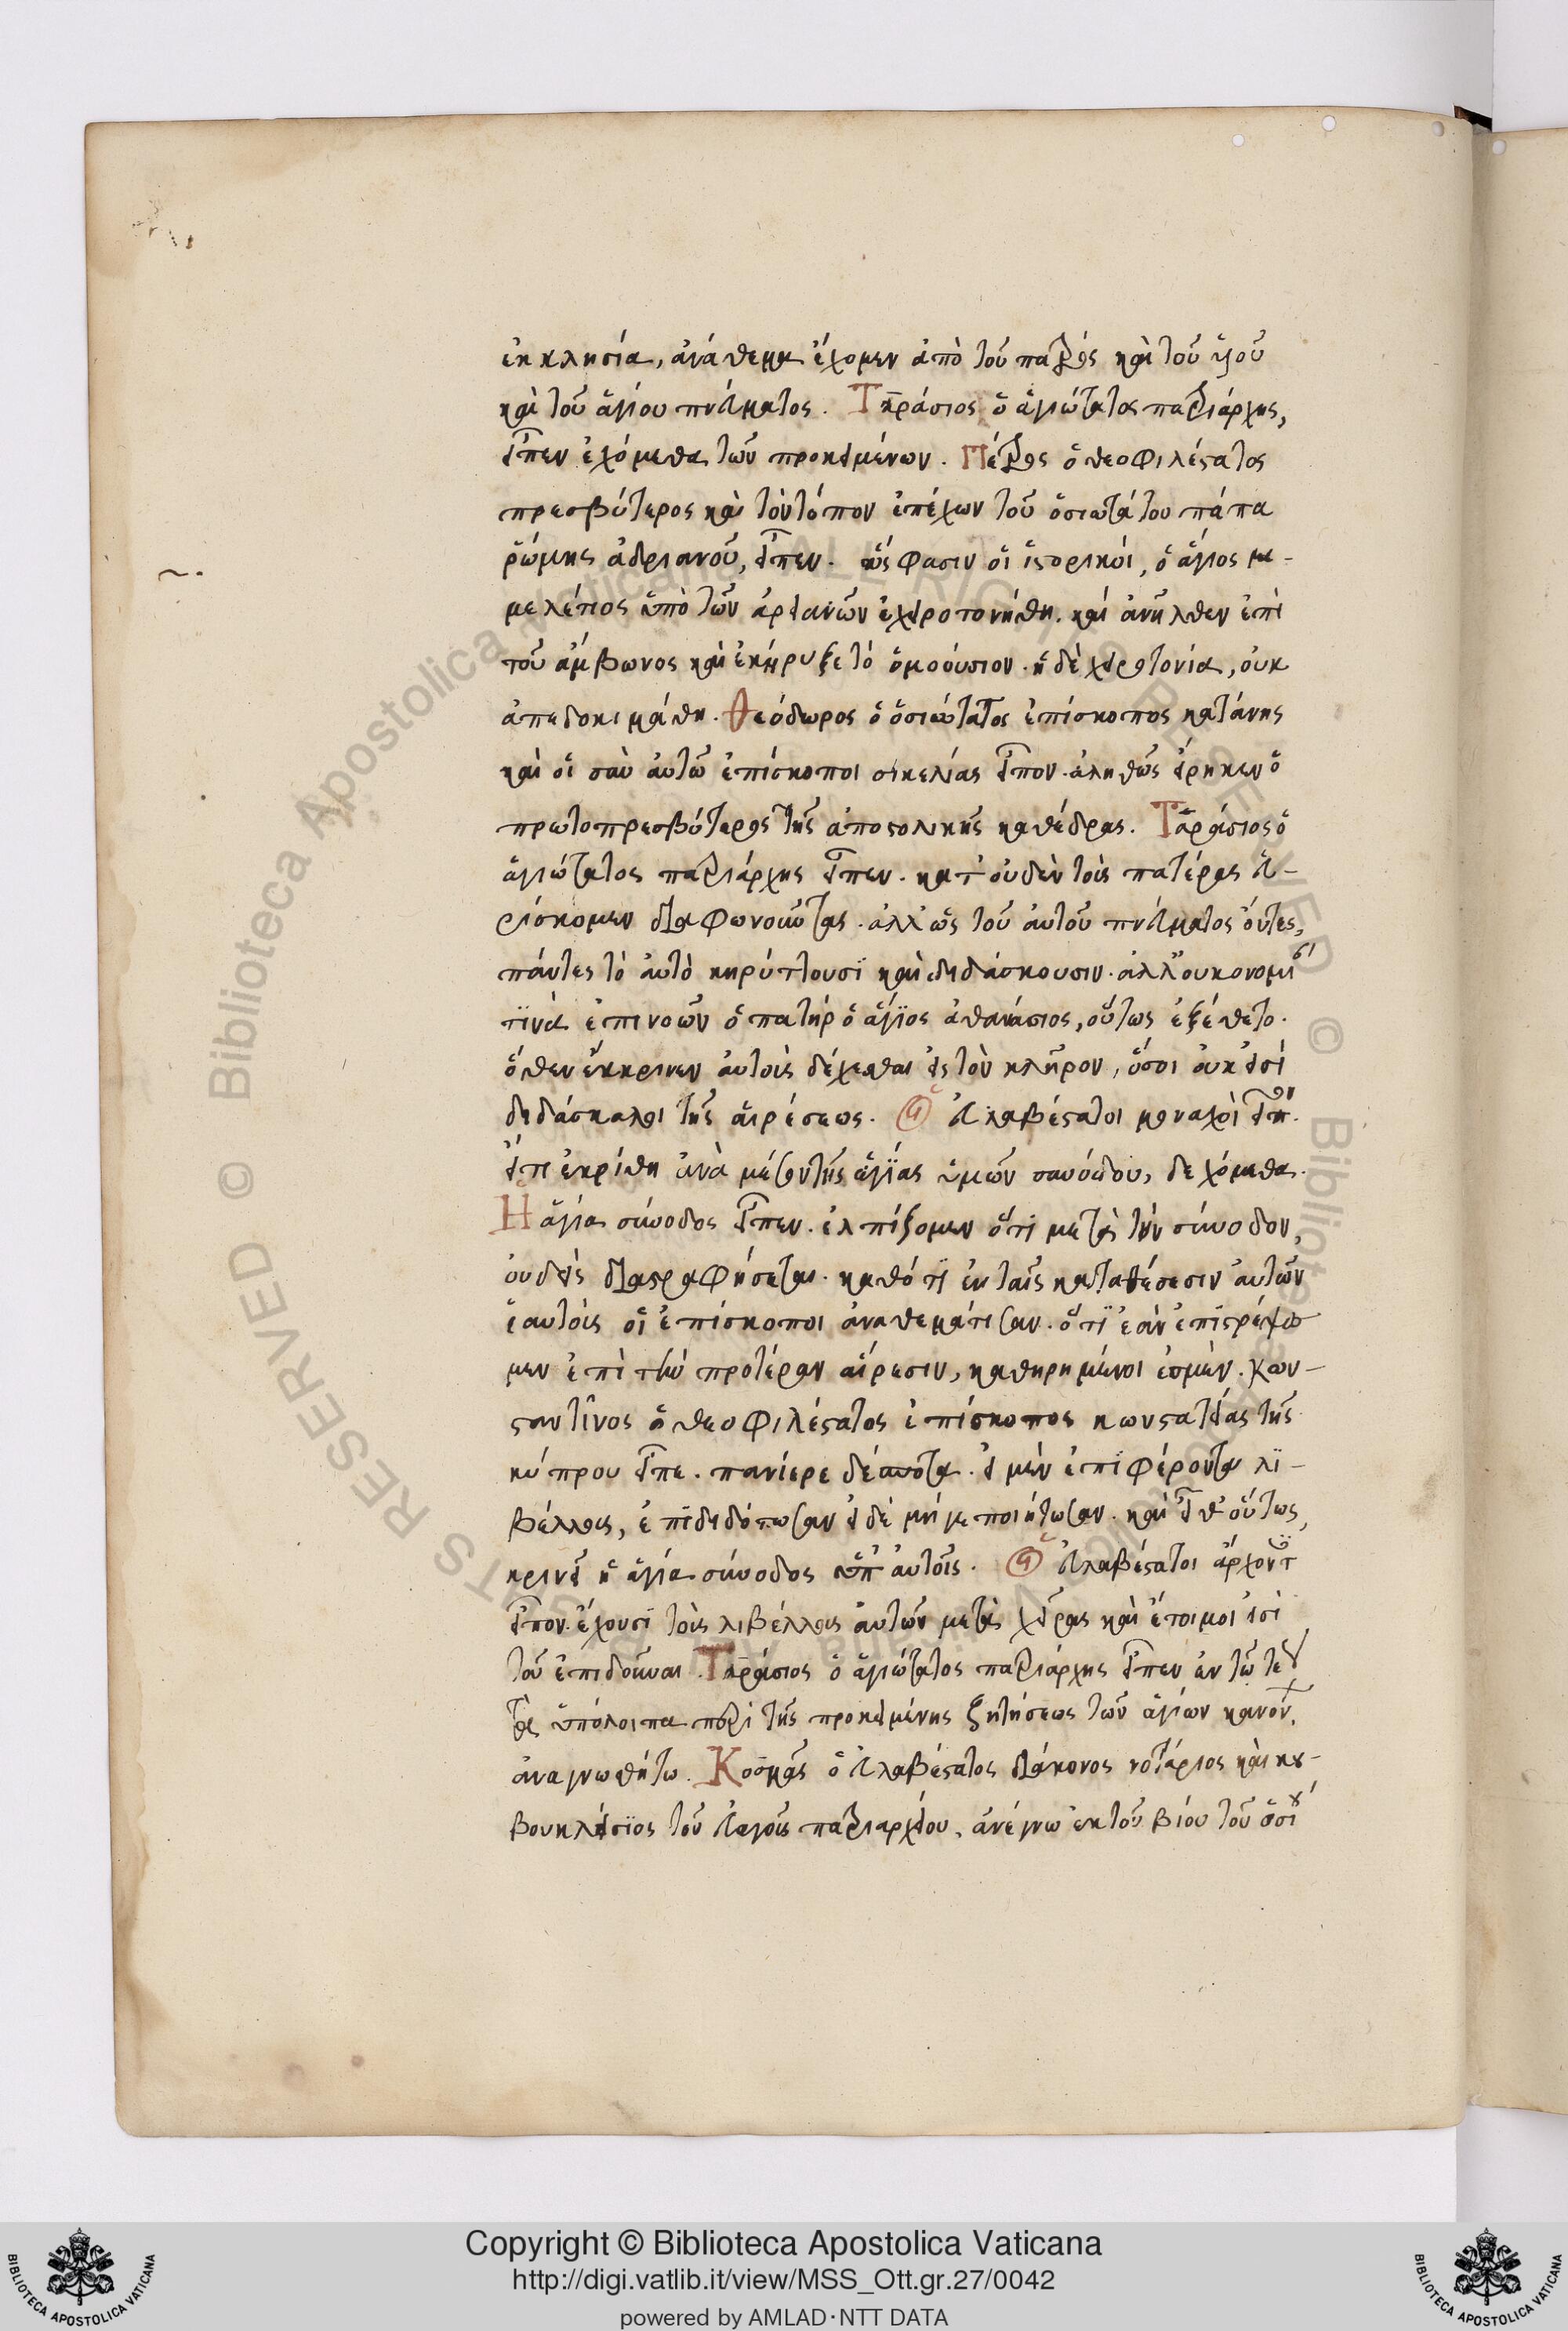 ἐκκλησία, ἀνάθεμα ἔχομεν ἀπὸ τοῦ πατρός καὶ τοῦ ὑιοῦ
καὶ τοῦ ἁγίου πνεύματος. Ταράσιος ὁ ἁγιώτατος πατριάρχης,
εἶπεν ἐχόμεθα τῶν προκειμένων. Πέτρος ὁ θεοφιλέστατος
πρεσβύτερος καὶ τὸν τόπον ἐπέχων τοῦ ὁσιωτάτου πάπα
ῥώμης ἀδριανοῦ, εἶπεν. ὥς φασιν οἱ ἱστορικοί, ὁ ἅγιος με-
μελέτιος ὑπὸ τῶν ἀρειανῶν ἐχειροτονήθη. καὶ ἀνῆλθεν ἐπὶ
τοῦ ἄμβωνος καὶ ἐκήρυξε τὸ ὁμοούσιον. ἡ δὲ χειροτονία, οὐκ
ἀπεδοκιμάσθη. Θεόδωρος ὁ ὁσιώτατος ἐπίσκοπος κατάνης
καὶ οἱ σὺν αὐτῶ ἐπίσκοποι σικελίας εἶπον. ἀληθῶς εἴρηκεν ὁ
πρωτοπρεσβύτερος τῆς ἀποστολικῆς καθέδρας. Ταράσιος ὁ
ἁγιώτατος πατριάρχης εἶπεν. κατ' οὐδὲν τοὺς πατέρας εὑ-
ρίσκομεν διαφωνοῦντας. ἀλλ' ὡς τοῦ αὐτοῦ πνεύματος ὄντες,
πάντες τὸ αὐτὸ κηρύττουσι καὶ διδάσκουσιν. ἀλλ' οὐκονομίαν
τινὰ ἐπινοῶν ὁ πατὴρ ὁ ἅγιος ἀθανάσιος, οὕτως ἐξέθετο.
ὅθεν ἔκκρινεν αὐτοὺς δέχεσθαι εἰς τὸν κλῆρον, ὅσοι οὐκ εἰσὶ
διδάσκαλοι τῆς αἱρέσεως. Οἱ εὐλαβέστατοι μοναχοὶ εἶπον.
εἴ τι ἐκρίθη ἀνὰ μέσον τῆς ἁγίας ὑμῶν συνόδου, δεχόμεθα.
Ἡ ἁγία σύνοδος εἶπεν. ἐλπίζομεν ὅτι μετὰ τὴν σύνοδον,
οὐδεὶς διαστραφήσεται. καθότι ἐν ταῖς καταθέσεσιν αὐτῶν
ἑαυτοὺς οἱ ἐπίσκοποι ἀναθεμάτισαν. ὅτι ἐὰν ἐπιστρέψω
μεν ἐπὶ τὴν προτέραν αἵρεσιν, καθηρημένοι ἐσμὲν. Κων-
σταντῖνος ὁ θεοφιλέστατος ἐπίσκοπος κωνσταντείας τῆς
κύπρου εἶπε. πανίερε δέσποτα. εἰ μὲν ἐπιφέρονται λι-
βέλλους, ἐπιδιδότωσαν εἰ δὲ μήγε ποιήτωσαν. καὶ εἶθ' οὕτως,
κρινεῖ ἡ ἁγία σύνοδος ὑπ' αὐτοῖς. Οἱ εὐλαβέστατοι ἄρχοντες
εἶπον. ἔχουσι τοὺς λιβέλλους αὐτῶν μετὰ χεῖρας καὶ ἕτοιμοι εἰσὶ
τοῦ ἐπιδοῦναι. Ταράσιος ὁ ἁγιώτατος πατριάρχης εἶπεν ἐν τῶ τέ
τὰ ὑπόλοιπα περὶ τῆς προκειμένης ζητήσεως τῶν ἁγίων κανόνων.
ἀναγνωσθήτω. Κοσμᾶς ὁ εὐλαβέστατος διάκονος νοτάριος καὶ κου-
βουκλείσιος τοῦ εὐαγοῦς πατριαρχείου, ἀνέγνω ἐκ τοῦ βίου τοῦ ὁσίου
Copyright © Biblioteca Apostolica Vaticana
http://digi.vatlib.it/view/MSS_Ott.gr.27/0042
powered by AMLAD·NTT DATA